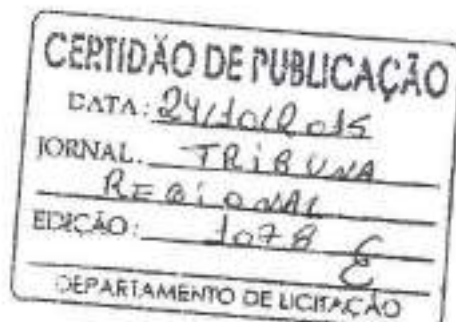 CERTIDÃO DE PUBLICAÇÃO
DATA: 24/10/2015
JORNAL. TRIBUNA
REGIONAL
EDIÇÃO: 1078
DEPARTAMENTO DE LICITAÇÃO